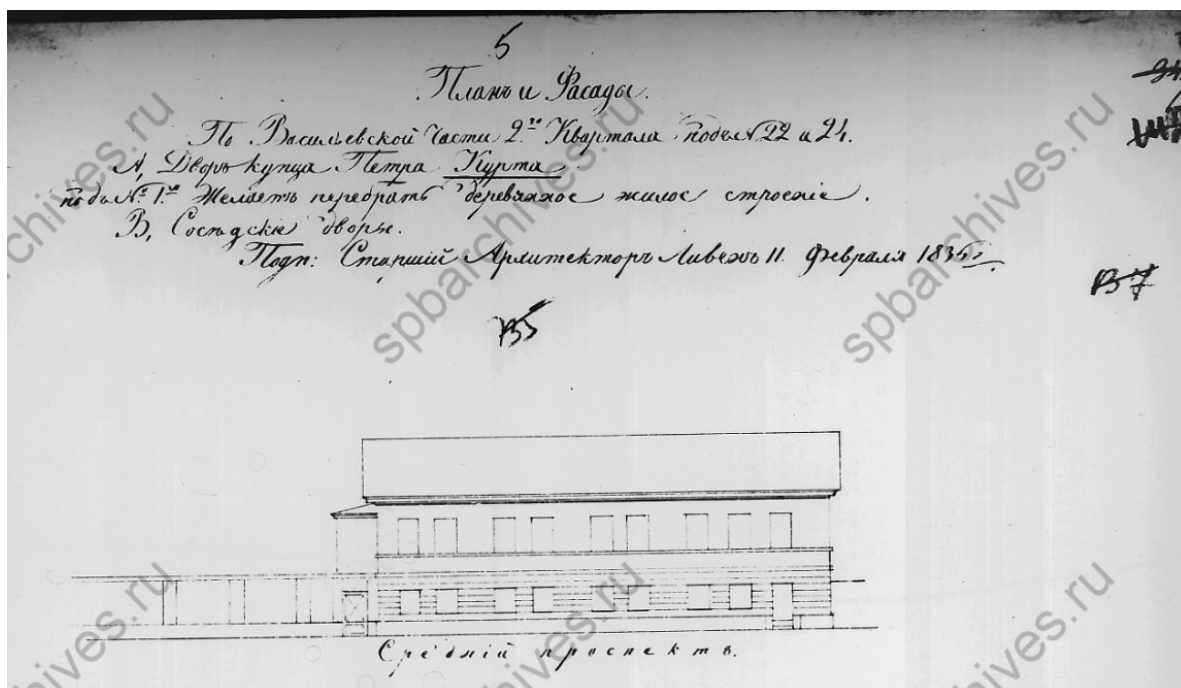 5
Планъ и Фасады.
По Васильевской Части 2го Квартала подъ № 22 и 24.
А, Дворъ купца Петра Курта
подъ № 1м Желаетъ перебрать деревянное жилое строение.
В, Соседские дворы.
Подп: Старший Архитекторъ Ливенъ 11 Февраля 183
В5
В7
Средній проспектъ.
spbarchives.ru
spbarchives.ru
spbarchives.ru
spbarchives.ru